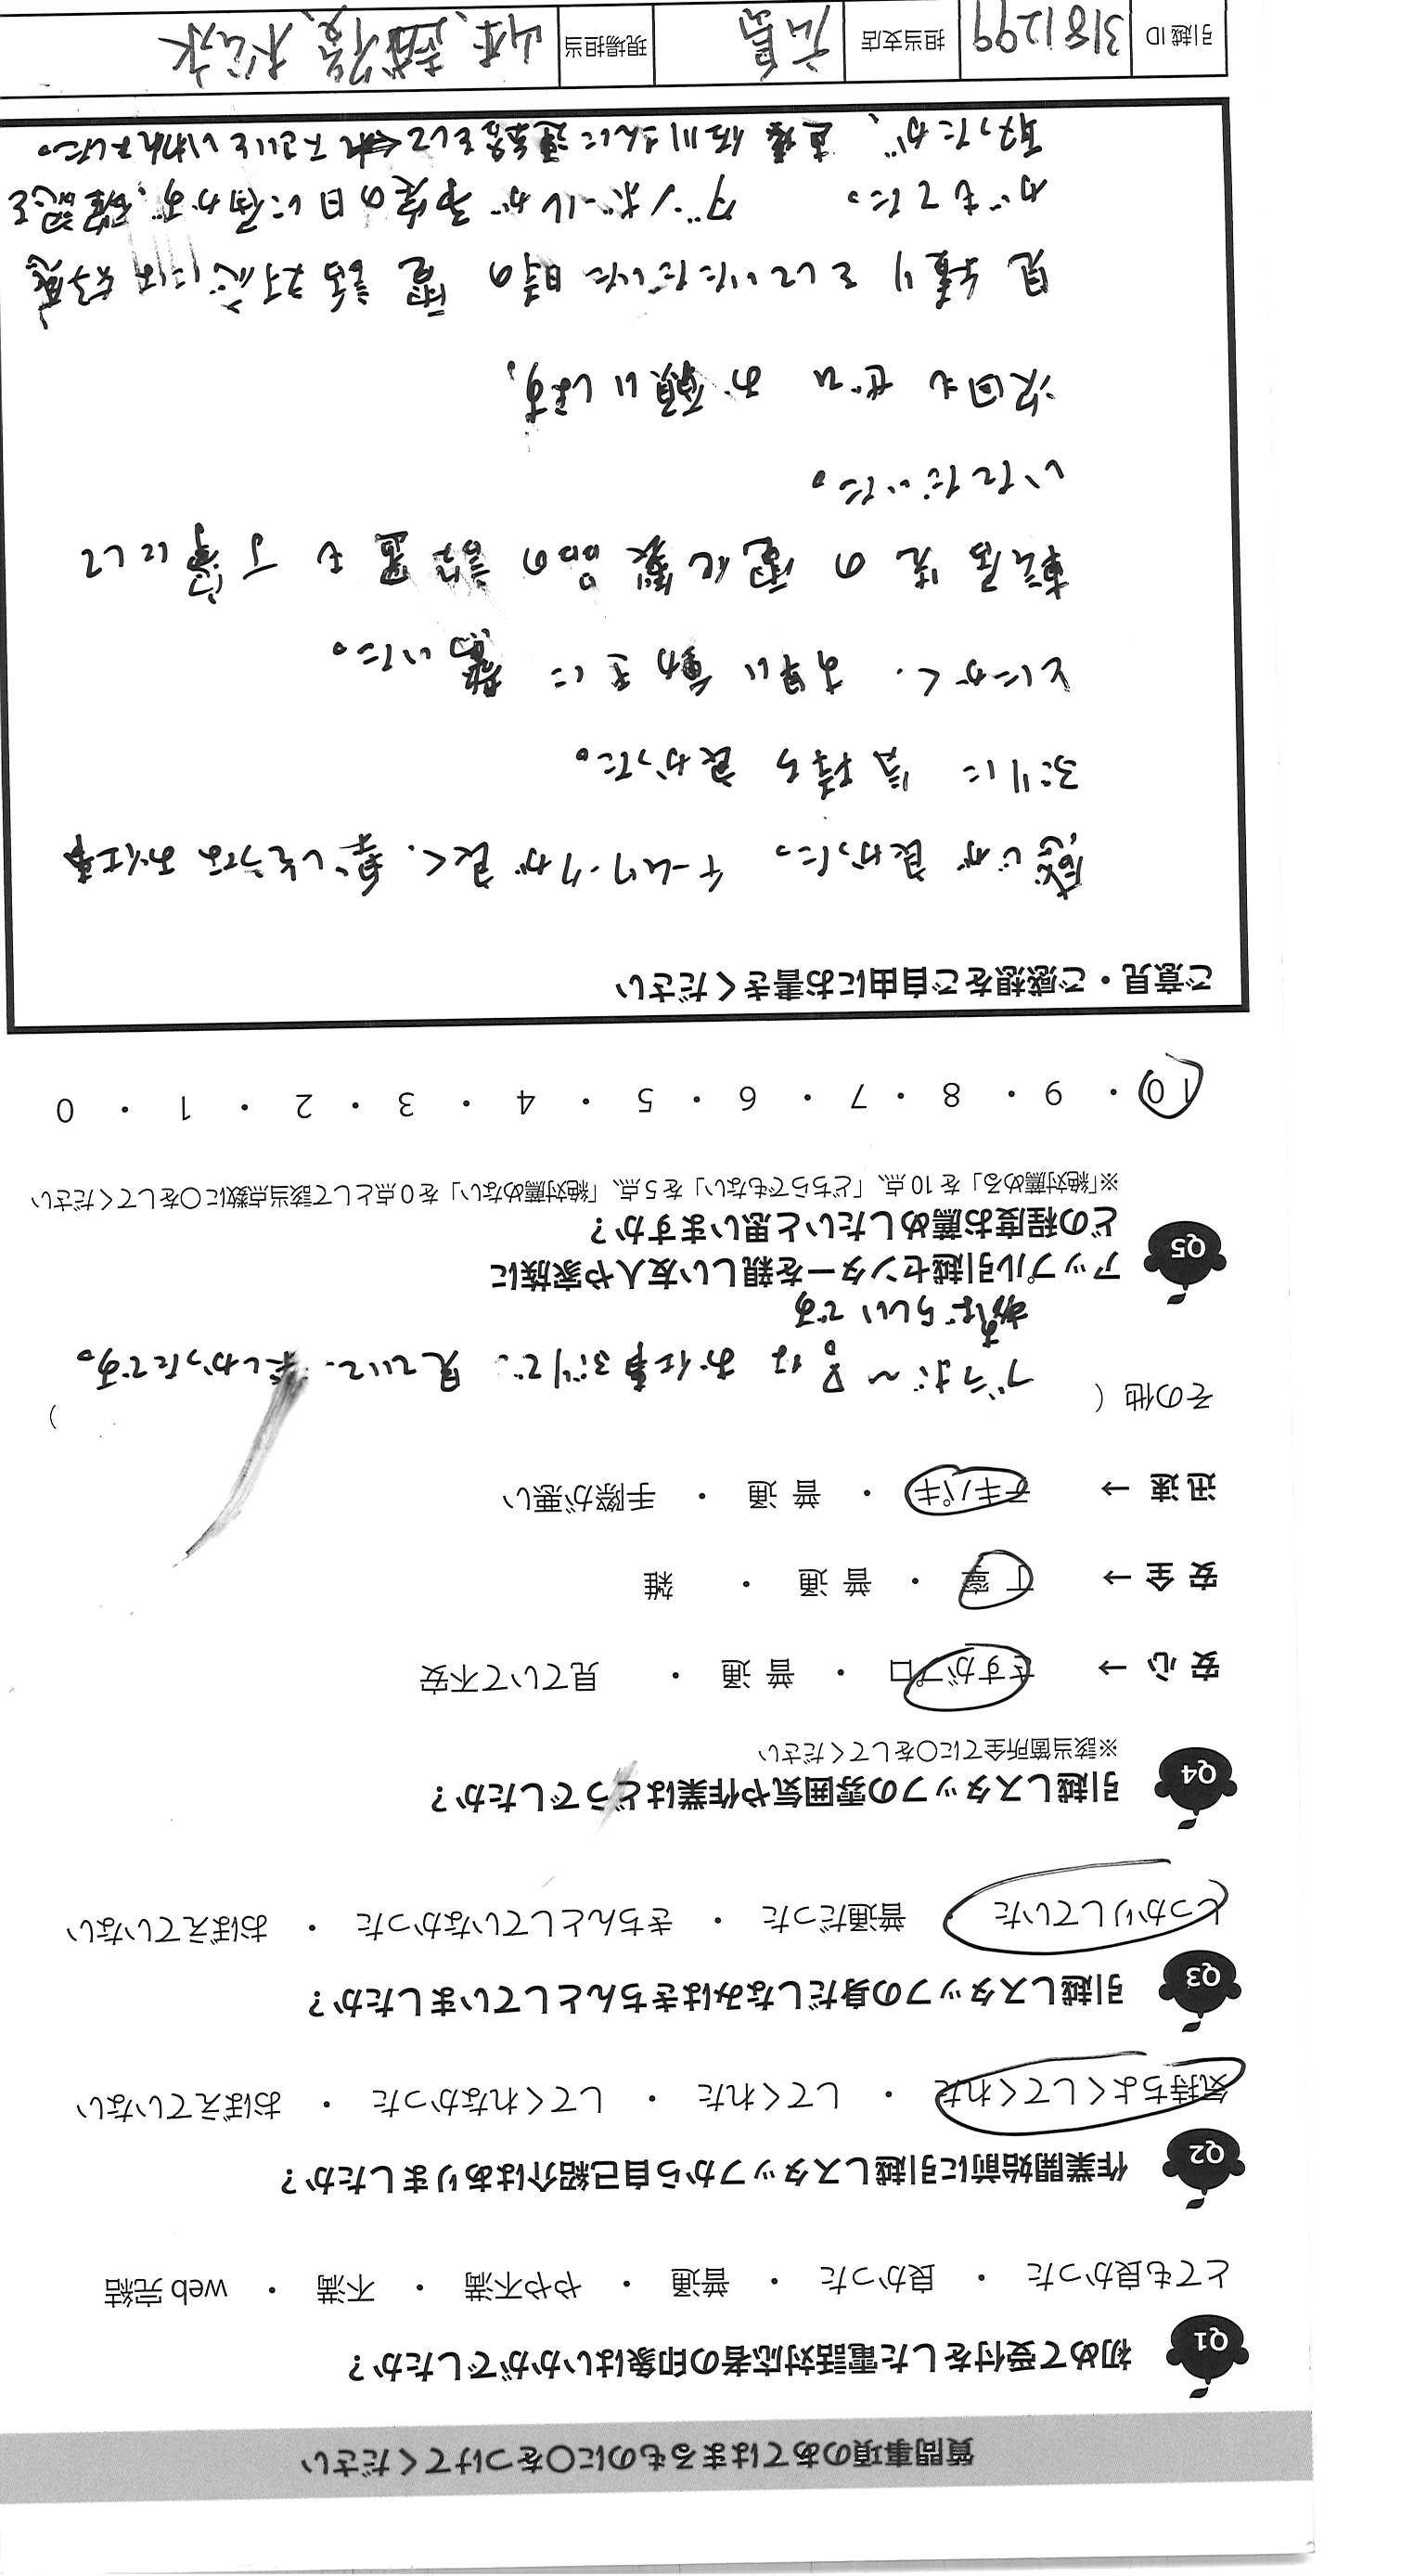 質問事項のあてはまるものに○をつけてください
Q1 初めて受付をした電話対応者の印象はいかがでしたか？
とても良かった ・ 良かった ・ 普通 ・ やや不満 ・ 不満 ・ web 完結
Q2 作業開始前に引越しスタッフから自己紹介はありましたか？
気持ちよくしてくれた ・ してくれた ・ してくれなかった ・ おぼえていない
Q3 引越しスタッフの身だしなみはきちんとしていましたか？
しっかりしていた ・ 普通だった ・ きちんとしていなかった ・ おぼえていない
Q4 引越しスタッフの雰囲気や作業はどうでしたか？
※該当箇所全てに○をしてください
安 心 → さすがプロ ・ 普 通 ・ 見ていて不安
安 全 → 丁 寧 ・ 普 通 ・ 雑
迅 速 → テキパキ ・ 普 通 ・ 手際が悪い
その他（ ブラボ～!! なお仕事ぶりで、見ていて、楽しかったです。 ）
すばらしいです
Q5 アップル引越センターを親しい友人や家族に
どの程度お薦めしたいと思いますか？
※「絶対薦める」を 10 点、「どちらでもない」を 5 点、「絶対薦めない」を 0 点として該当点数に○をしてください
10 ・ 9 ・ 8 ・ 7 ・ 6 ・ 5 ・ 4 ・ 3 ・ 2 ・ 1 ・ 0
ご意見・ご感想をご自由にお書きください
感じが良かった。チームワークが良く、楽しそうなお仕事
ぶりに 気持ち 良かった。
とにかく、す早い動きに 驚いた。
転居先の電化製品の設置も丁寧にして
いただいた。
次回も ぜひ お願いします。
見積りをしていただいた時の電話対応には好感
がもてた。 ダンボールが予定の日に届かず、確認を
取ったが、直接佐川さんに連絡をして下さいといわれました。
引越 ID 3181299 担当支店 広島 現場担当 山本、越智、松永